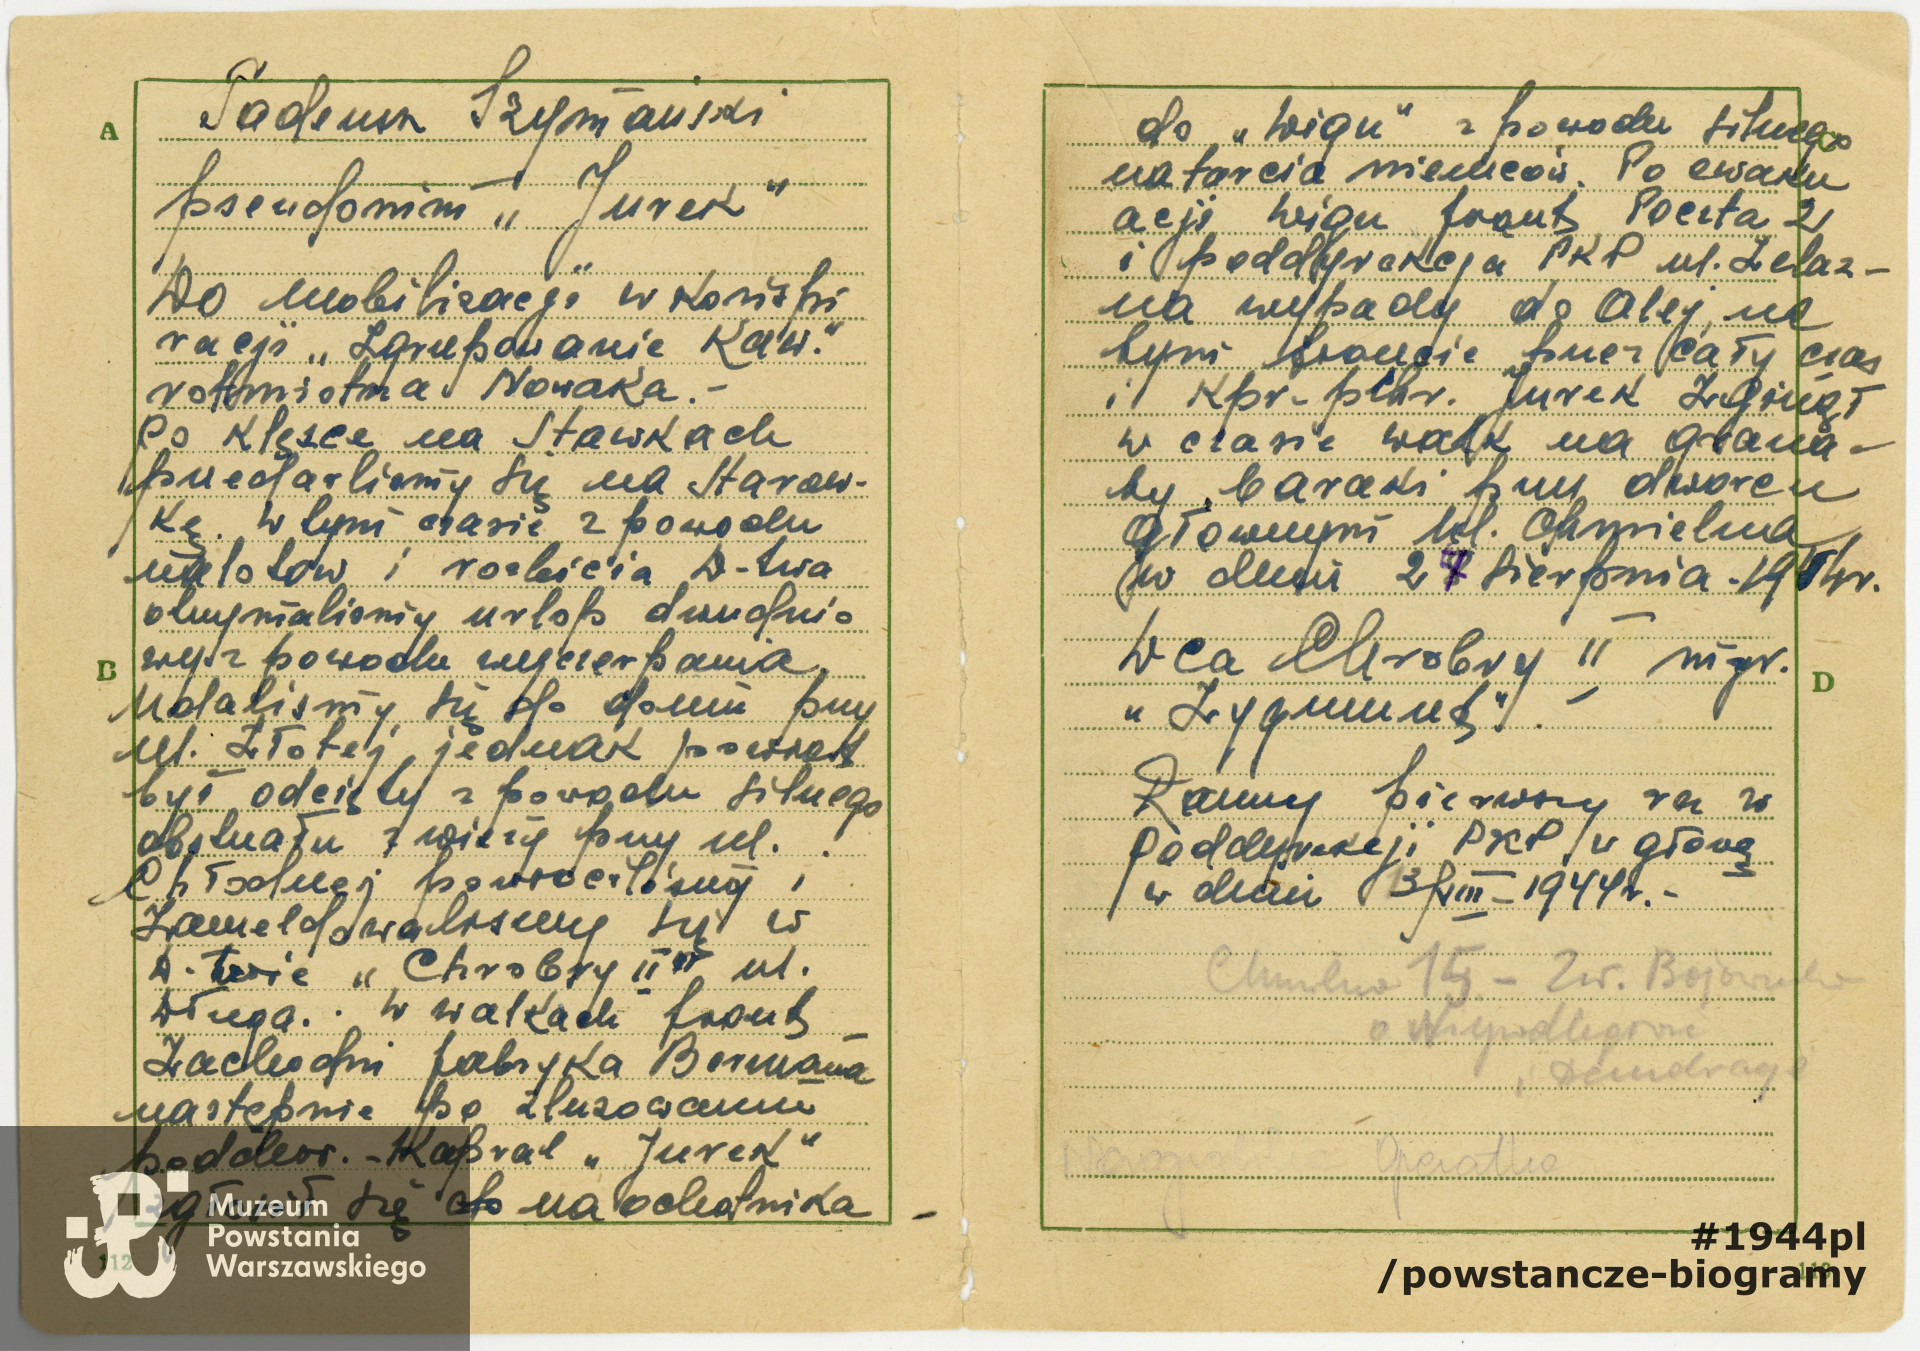 A
Tadeusz Szymański
pseudonim „Jurek"
Do mobilizacji w konspi
racji „Zgrupowanie Kaw."
rotmistrza Nowaka.-
Po klęsce na Stawkach
przedarliśmy się na Starów-
kę. W tym czasie z powodu
nalotów i rozbicia D-twa
otrzymaliśmy urlop dwudnio
wy z powodu wyczerpania
B
Udaliśmy się do domu przy
ul. Złotej, jednak powrót
był odcięty z powodu silnego
obstrzału z wieży przy ul.
Chłodnej powróciliśmy i
zameldowaliśmy się w
D-twie „Chrobry II" ul.
Długa.. W walkach front
Zachodni fabryka Bormana
następnie po zluzowaniu
podchor. - Kapral „Jurek"
zgłosił się do na ochotnika
112
do „Wigu" z powodu silnego
C
natarcia niemców. Po ewaku
acji Wigu front Poczta 2
i poddyrekcja PKP ul. Żelaz-
na wypady do Alej, na
tym froncie przez cały czas
i Kpr-pchr. Jurek zginął
w czasie walk na grana-
ty, baraki przy dworcu
głównym ul. Chmielna
w dniu 27 sierpnia-1944r.
Dca Chrobry II mjr.
D
„Zygmunt".
Ranny pierwszy raz w
Poddyrekcji PKP, w głowę
w dniu 13/VIII-1944r.-
Chmielna 15.- Zw. Bojowników
o niepodległość
i demokrację
Operatka
113
Muzeum
Powstania
Warszawskiego
#1944pl
/powstancze-biogramy